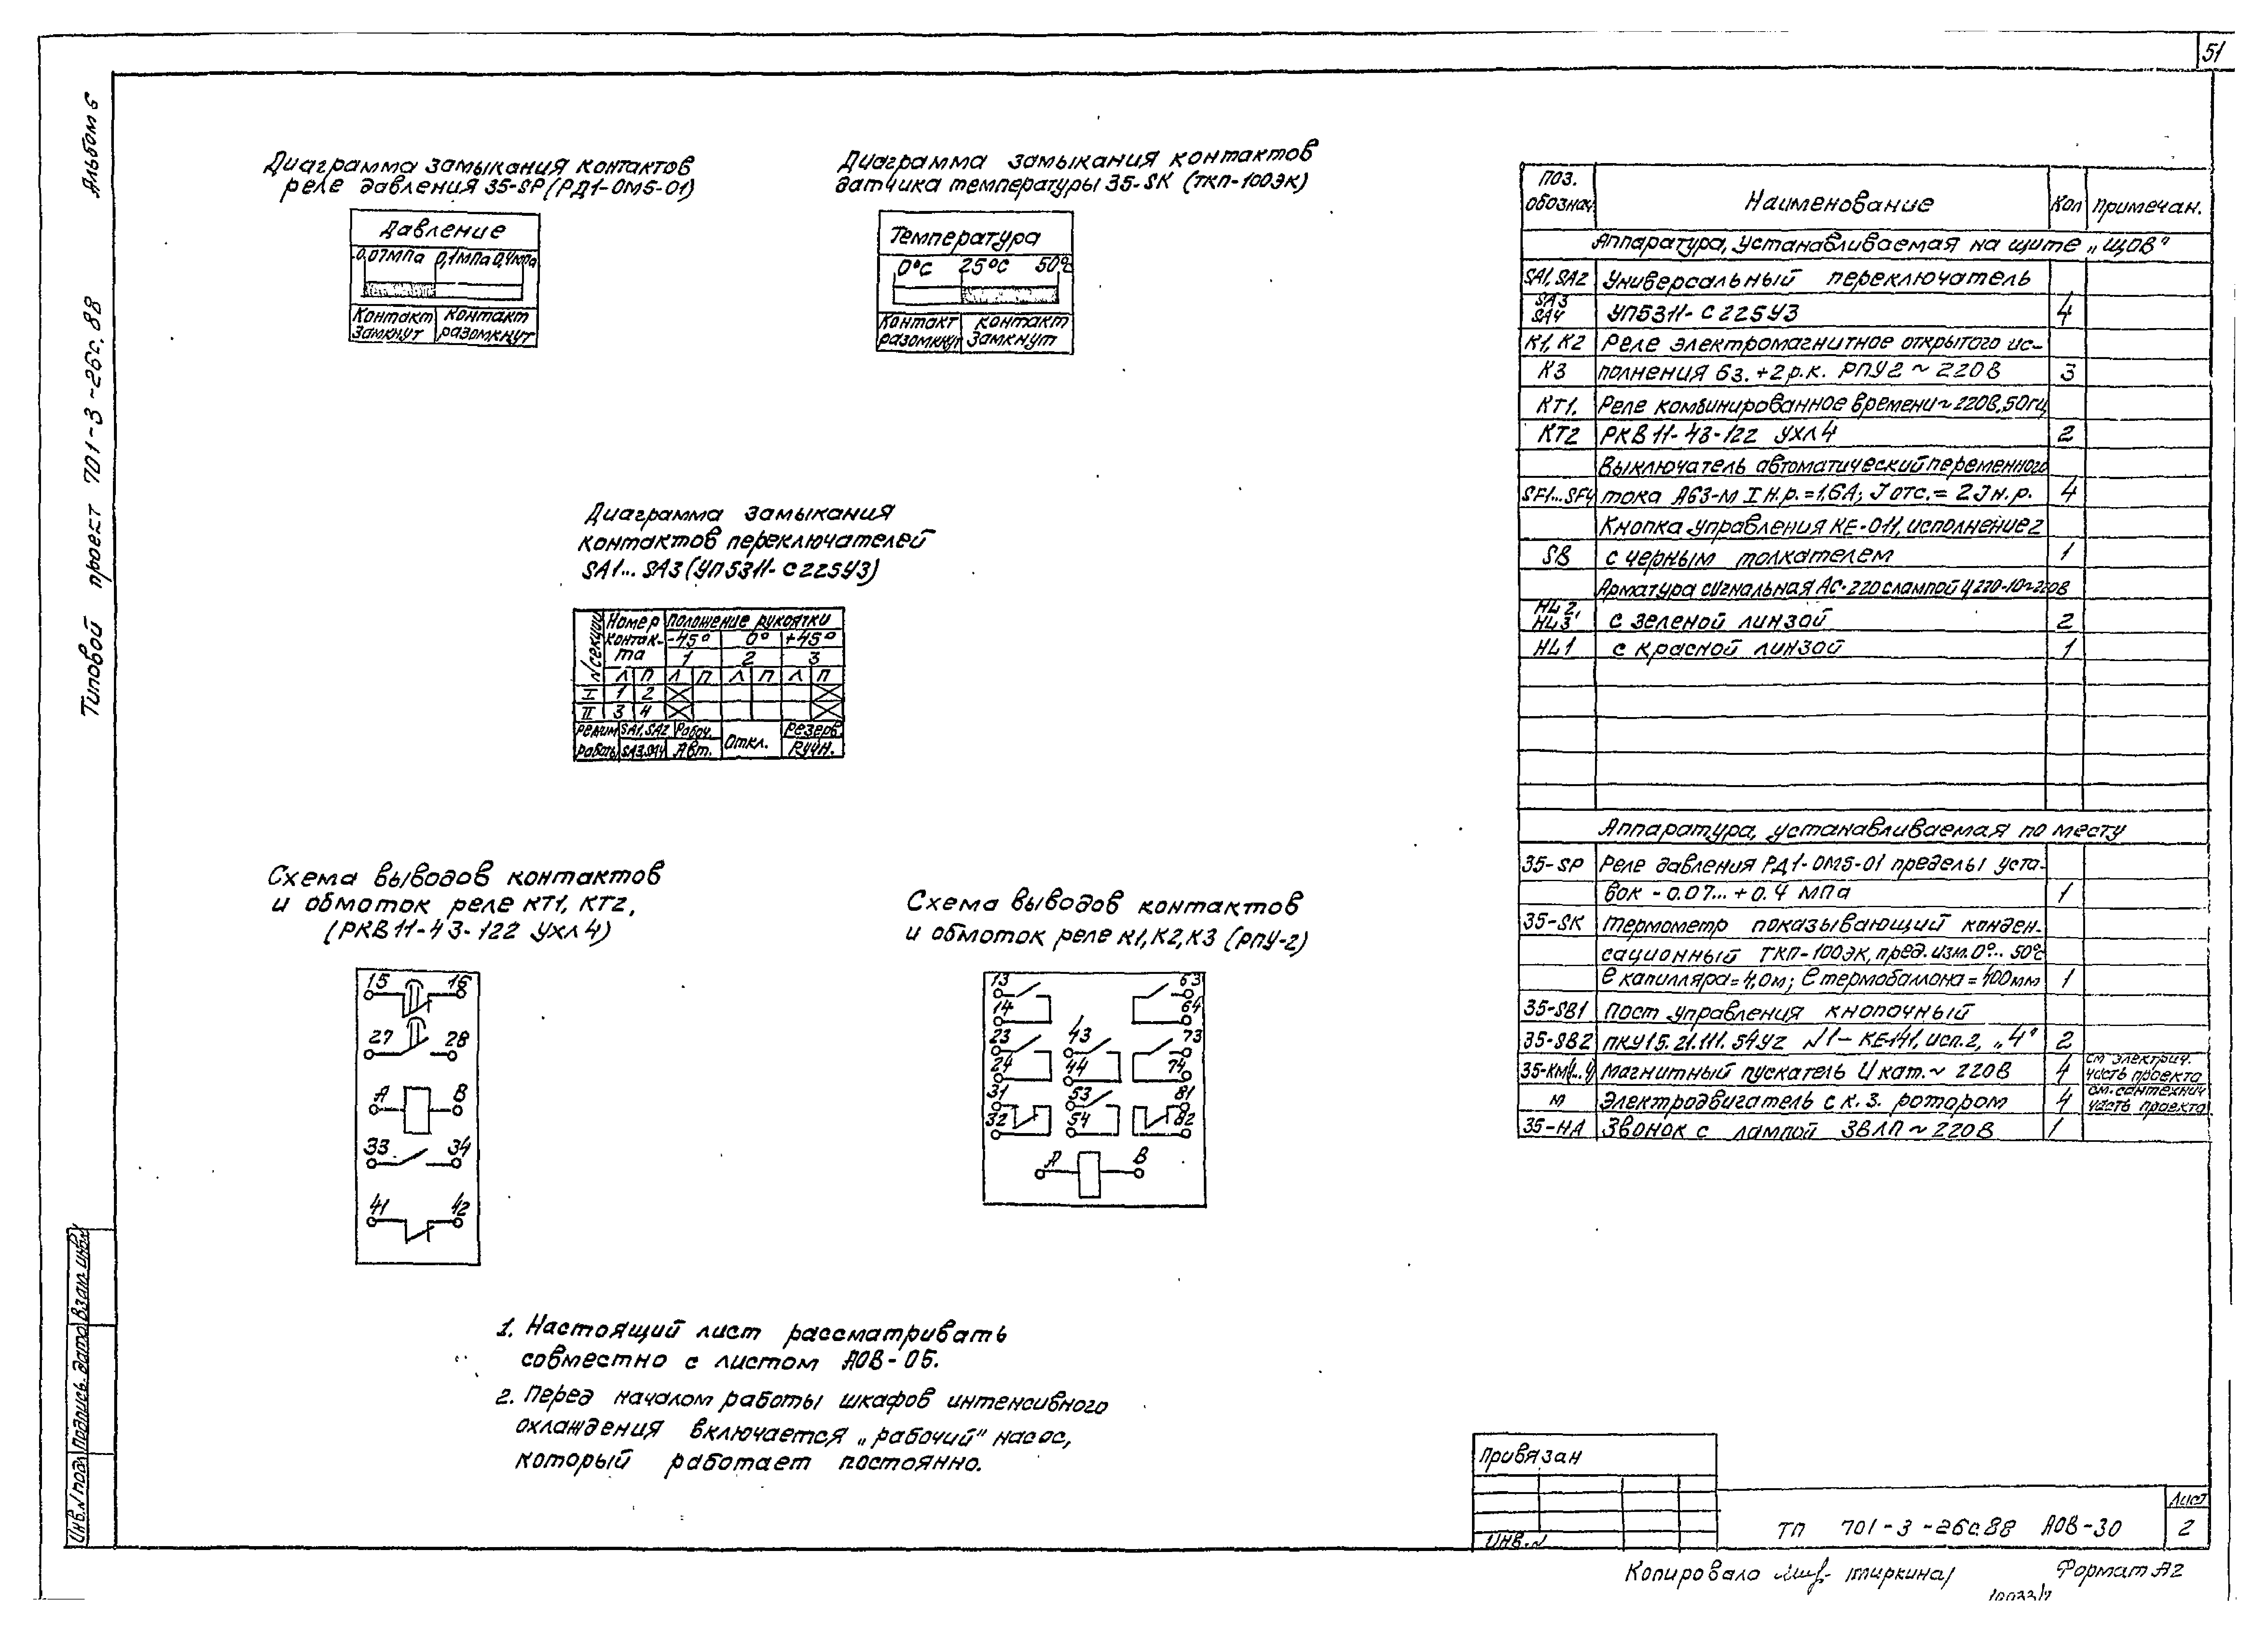 51
Альбом 6
Типовой проект 701-3-26с.88
Диаграмма замыкания контактов
реле давления 35-SP (РД1-ОМ5-01)
Давление
-0,07МПа 0,1МПа 0,4МПа
Контакт контакт
замкнут разомкнут
Диаграмма замыкания контактов
датчика температуры 35-SK (ТКП-100ЭК)
Температура
0°С 25°С 50°С
Контакт контакт
разомкнут замкнут
Диаграмма замыкания
контактов переключателей
SA1... SA3 (УП5311-С225У3)
N секции Номер Положение рукоятки
контак- -45° 0° +45°
та 1 2 3
Л П Л П Л П Л П
I 1 2
II 3 4
Режим SA1, SA2 Рабоч. Откл. Резерв.
работы SA3, SA4 Авт. Ручн.
Схема выводов контактов
и обмоток реле КТ1, КТ2,
(РКВ 11-43-122 УХЛ4)
15 16
27 28
А В
33 34
41 42
Схема выводов контактов
и обмоток реле К1, К2, К3 (РПУ-2)
13 63
14 64
23 43 73
24 44 74
31 53 81
32 54 82
А В
1. Настоящий лист рассматривать
совместно с листом АОВ-05.
2. Перед началом работы шкафов интенсивного
охлаждения включается „рабочий" насос,
который работает постоянно.
Поз. обознач. Наименование Кол Примечан.
Аппаратура, устанавливаемая на щите „ЩОВ"
SA1, SA2 Универсальный переключатель
SA3 SA4 УП5311-С225У3 4
К1, К2 Реле электромагнитное открытого ис-
К3 полнения 6з.+2р.к. РПУ2 ~ 220В 3
КТ1. Реле комбинированное времени ~ 220В, 50гц
КТ2 РКВ 11-43-122 УХЛ4 2
Выключатель автоматический переменного
SF1...SF4 тока А63-М I н.р.=1,6А; J отс.= 2Jн.р. 4
Кнопка управления КЕ-011, исполнение 2
SB с черным толкателем 1
Арматура сигнальная АС-220 с лампой Ц220-10~220В
HL2, HL3 с зеленой линзой 2
HL1 с красной линзой 1
Аппаратура, устанавливаемая по месту
35-SP Реле давления РД1-ОМ5-01 пределы уста-
вок -0.07...+0.4 МПа 1
35-SK Термометр показывающий конден-
сационный ТКП-100ЭК, пред. изм. 0°... 50°С
ℓ капилляра=4,0м; ℓ термобаллона=400мм 1
35-SB1 Пост управления кнопочный
35-SB2 ПКУ15.21.111.54У2 N1-КЕ141, исп.2, „4" 2
35-КМ1..4 Магнитный пускатель Uкат.~ 220В 4 см электрич. часть проекта
М Электродвигатель с к.з. ротором 4 см. сантехнич часть проекта
35-НА Звонок с лампой ЗВЛП ~ 220В 1
Инв.N подл. Подпись. дата Взам. инв.N
Привязан
Инв.N
ТП 701-3-26с.88 АОВ-30
Лист
2
Копировала /тиркина/
Формат А2